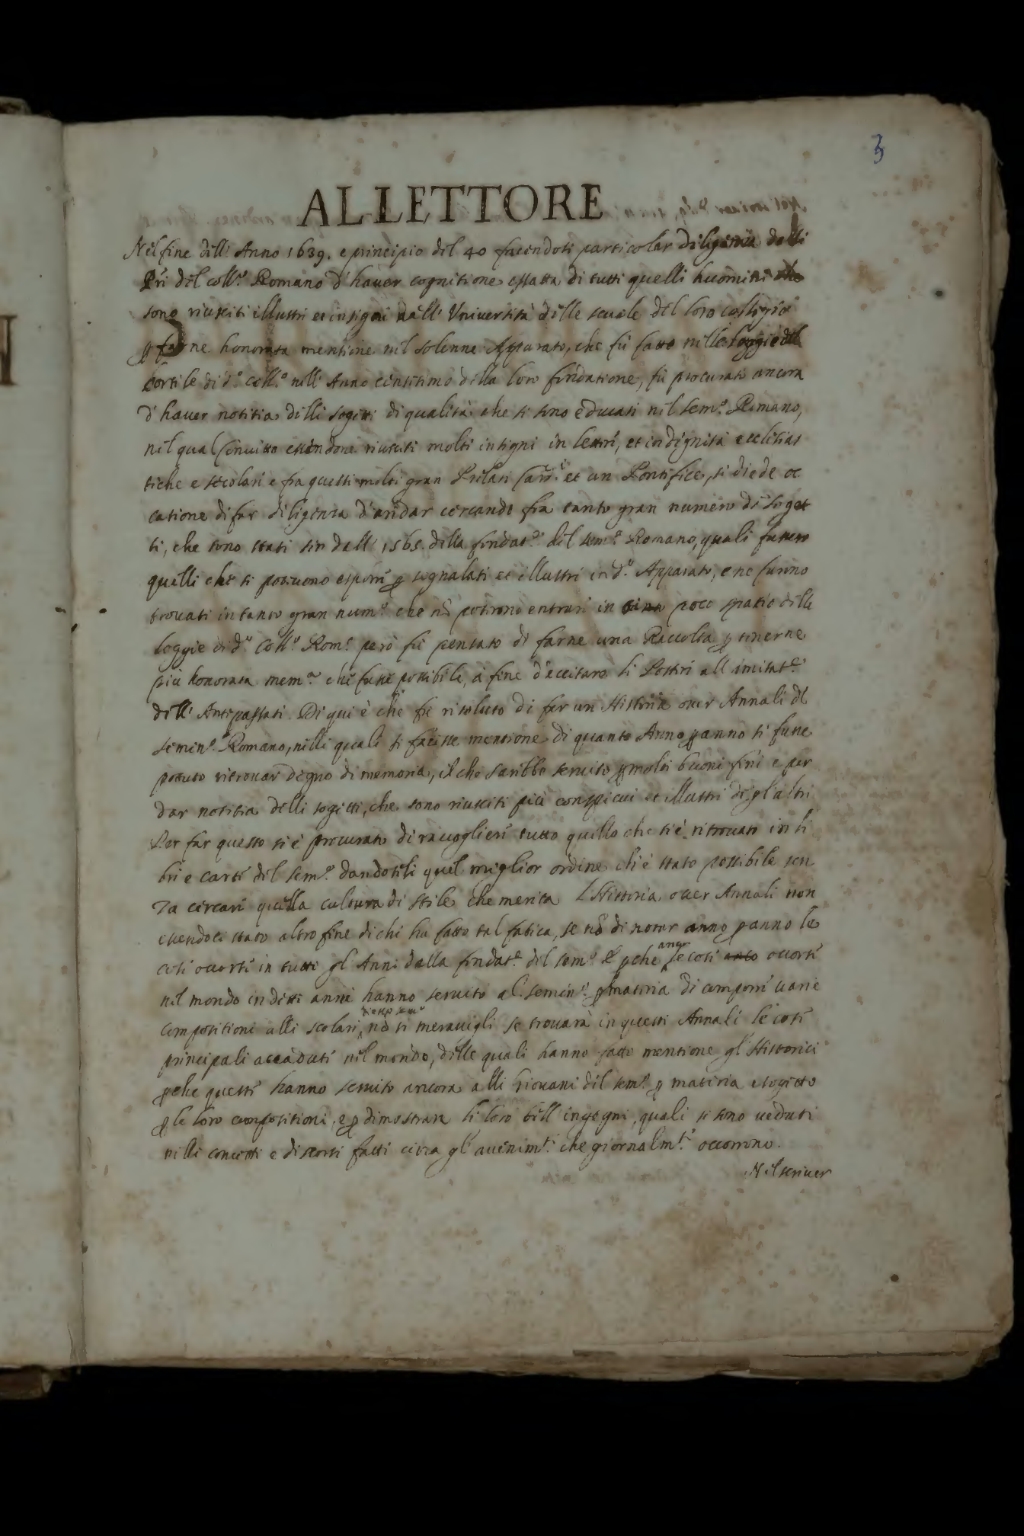 3
AL LETTORE
Nel fine dell' Anno 1639. e principio del 40 facendosi particolar diligenza dalli
Pri del Coll.o Romano d'haver cognitione essatta di tutti quelli huomini che
sono riusciti illustri et insigni dall' Università delle scuole del loro collegio
p farne honorata mentione nel solenne Apparato, che fù fatto nelle loggie del
Cortile di d.o Coll.o nell' Anno centesimo della loro fondatione, fù procurato ancora
d'haver notitia delli sogetti di qualità che si sono educati nel Sem.o Romano,
nel qual Convitto essendone riusciti molti insigni in lettere, et in dignità ecclesias
tiche e secolari e fra questi molti gran Prelati Card.i et un Pontefice, si diede oc
catione di far diligenza d'andar cercando fra tanto gran numero di soget
ti, che sono stati sin dall' 1565 della fondat.e del Sem.o Romano, quali furono
quelli che si potevono esporre p segnalati et illustri in d.o Apparato, e ne furono
trovati in tanto gran num.o che nō potrono entrare in poco spatio delle
loggie di d.o Coll.o Rom.o però fù pensato di farne una Raccolta p tenerne
più honorata mem.a che fusse possibile, a fine d'eccitare li Posteri all' imitat.e
dell' Antepassati. Di qui è che fu risoluto di far un Historia over Annali del
Semin.o Romano, nelli quali si facesse mentione di quanto Anno p anno si fusse
potuto ritrovar degno di memoria, il che sarebbe servito p molti buoni fini e per
dar notitia delli sogetti, che sono riusciti più conspicui et illustri degl'altri
Per far questo si è procurato di raccogliere tutto quello che si è ritrovato in li
bri e carte del Sem.o dandoseli quel miglior ordine che è stato possibile sen
za cercare quella cultura di stile che merita l'Historia over Annali non
essendoci stato altro fine di chi ha fatto tal fatica, se nō di notar anno p anno le
cose occorse in tutti gl'Anni dalla fondat.e del Sem.o E pche anco le cose occorse
nel mondo in detti anni hanno servito al Semin.o p materia di comporre varie
compositioni alli scolari, nō si meravigli se trovarà in questi Annali le cose
principali accadute nel mondo, delle quali hanno fatto mentione gl'Historici
pche queste hanno servito ancora alli Giovani del Sem.o p materia e sogetto
p le loro compositioni, e p dimostrare li loro belli ingegni, quali si sono veduti
nelli concetti e discorsi fatti circa gl'avenim.ti che giornalm.te occorrono.
Nel scriver